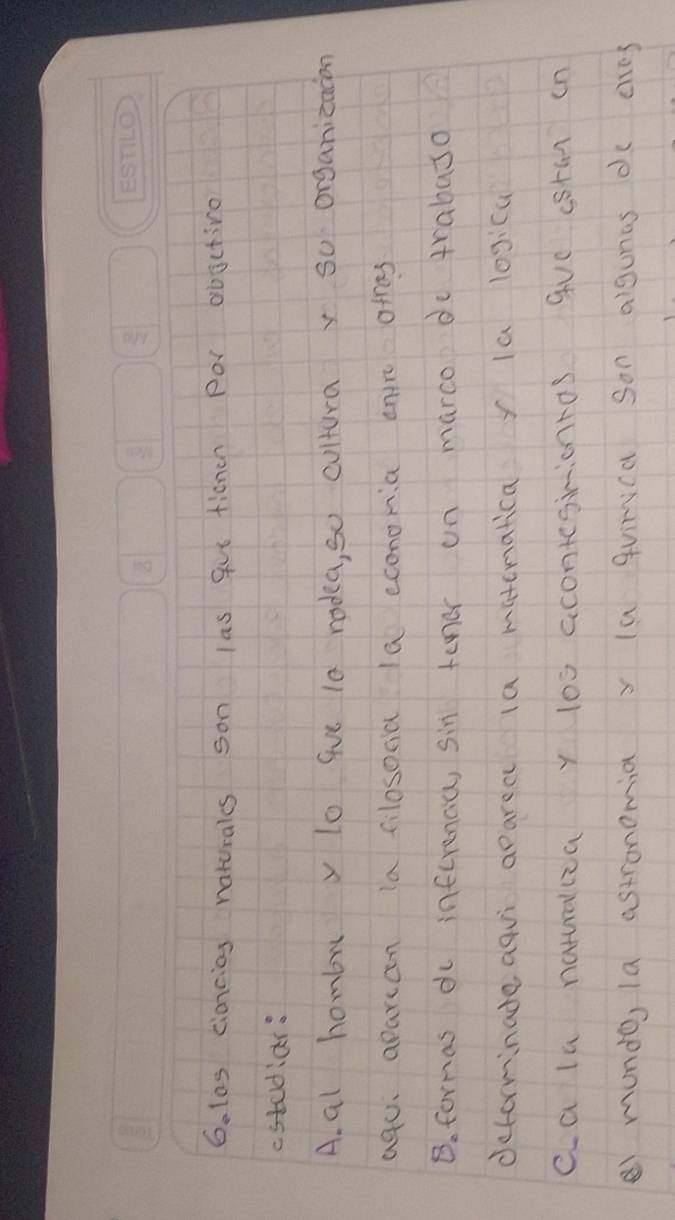 ESTILO
6. las ciencias naturales son las que tienen por objetivo
estudiar:
A. al hombre y lo que lo rodea, su cultura y su organización
aqui aparecen la filosofia la economia entre otras
B. formas de inferencia, sin tener un marco de trabajo
determinado aqui aparece la matematica y la logica
C. a la naturaleza y los acontesimientos que estan en
el mundo, la astronomia y la quimica son algunas de ellas